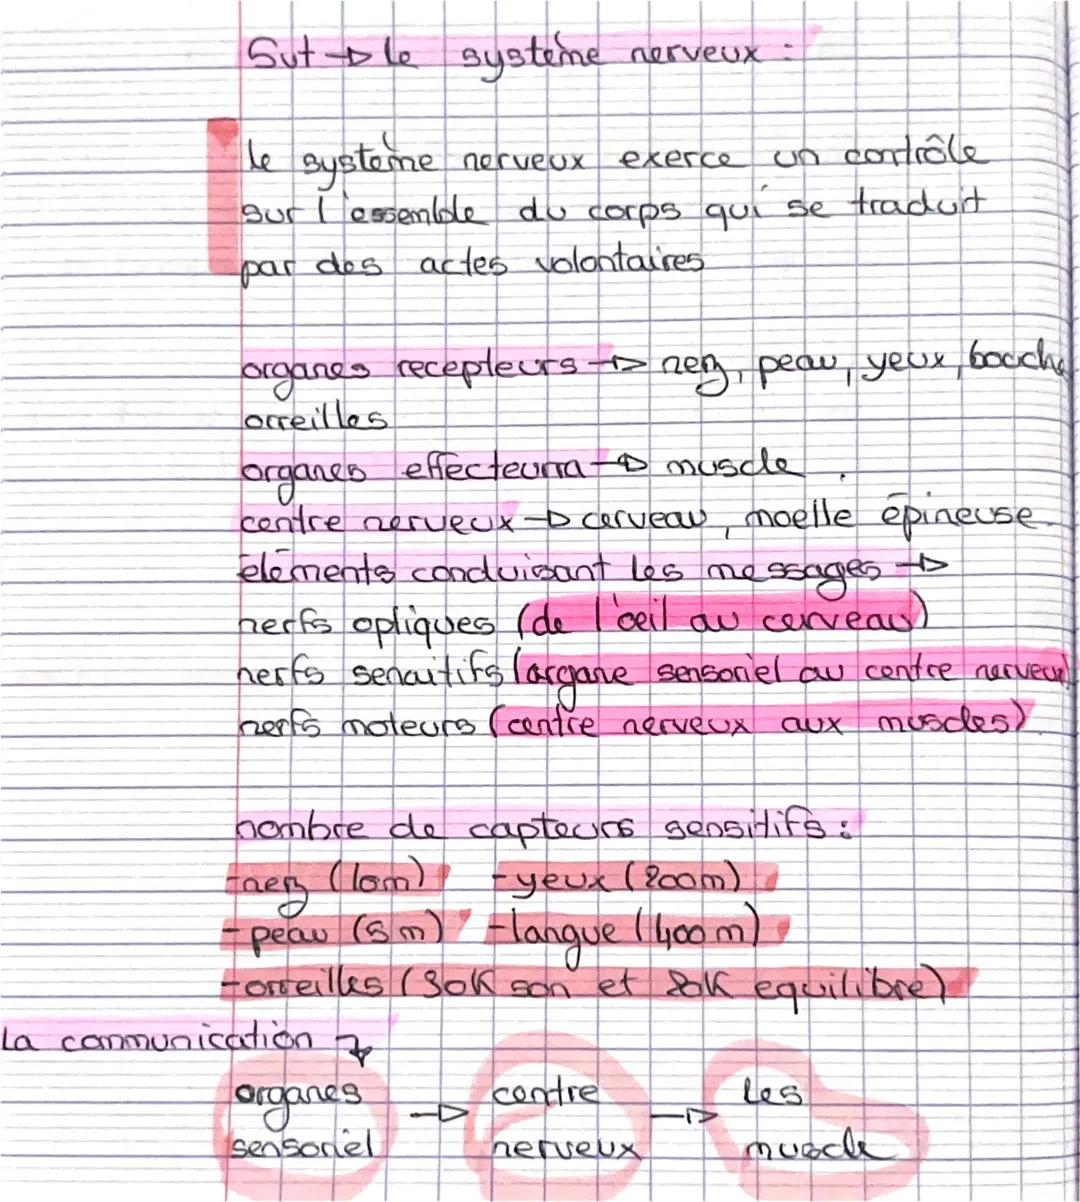 Svt → le système nerveux :
le système nerveux exerce un contrôle
sur l'essemble du corps qui se traduit
par des actes volontaires
organes recepteurs → nez, peau, yeux, bouche
orreilles
organes → muscle
centre nerveux → cerveau, moelle épineuse.
éléments conduisant les messages →
nerfs optiques (de l'oeil au cerveau)
nerfs (organe sensoriel au centre nerveux)
nerfs moteurs (centre nerveux aux muscles)
nombre de capteurs sensitifs :
-nez (10m) -yeux (200m)
-peau (5m) -langue (400m)
-orreilles (30K son et 20K equilibre)
La communication
organes → centre → les
sensoriel nerveux muscle